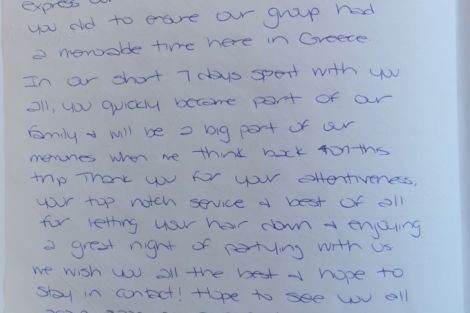 express our
you did to ensure our group had
a memorable time here in Greece
In our short 7 days spent with you
all, you quickly became part of our
family & will be a big part of our
memories when we think back on this
trip Thank you for your attentiveness,
your top notch service & best of all
for letting your hair down & enjoying
a great night of partying with us
we wish you all the best & hope to
stay in contact! Hope to see you all